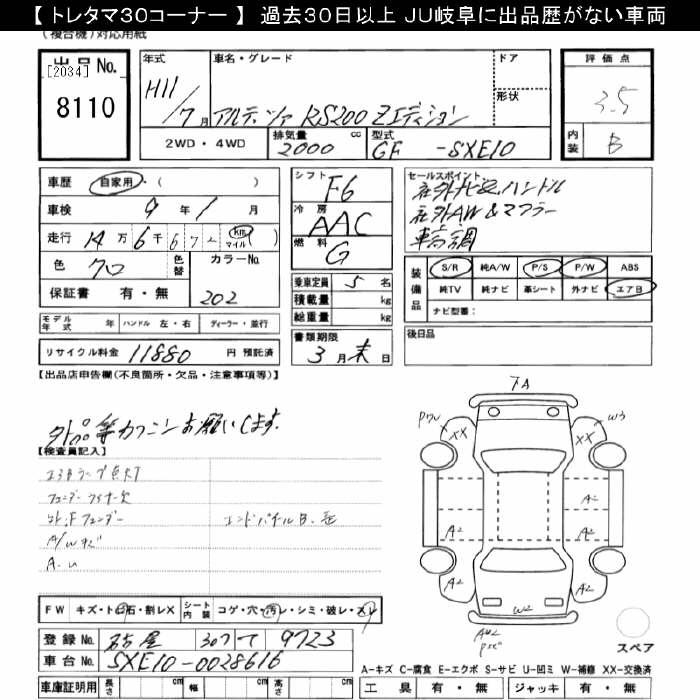 【 トレタマ30コーナー 】 過去30日以上 JU岐阜に出品歴がない車両
(複合機)対応用紙
出品No.
[2034]
8110
年式
H11/7月
車名・グレード
アルテッツァ RS200 Zエディション
ドア
形状
評価点
3.5
内装
B
2WD・4WD
排気量
2000
cc
型式
GF -SXE10
車歴
自家用・( )
車検
9年1月
走行
14万6千672 km マイル ( )
色
クロ
色替
カラーNo.
202
保証書 有・無
シフト
F6
冷房
AAC
燃料
G
セールスポイント
社外ナビ&ハンドル
社外AW&マフラー
車高調
乗車定員
5名
積載量
kg
総重量
kg
装備品
S/R 純A/W P/S P/W ABS
純TV 純ナビ 革シート 外ナビ エアB
ナビ型番:
モデル年式 年 ハンドル 左・右 ディーラー・並行
書類期限
3月末日
後日品
リサイクル料金 11880 円 預託済
【出品店申告欄(不良箇所・欠品・注意事項等)】
タトパ等カクニンお願いします.
【検査員記入】
エアBランプ点灯
フェンダーライナー欠
Fフェンダー
エンドパネルB.
A/Wキズ
A.U
FW キズ・ト石・割レX
シート内装 コゲ・穴・汚レ・シミ・破レ・スレ
登録No.
名古屋 307 て 9723
車台No.
SXE10-0028616
車庫証明用 長さ cm 幅 cm 高さ cm
7A
XX
XX
W3
A2
A2
A2
A2
A2
W2
スペア
A-キズ C-腐食 E-エクボ S-サビ U-凹ミ W-補修 XX-交換済
工具 有・無 ジャッキ 有・無